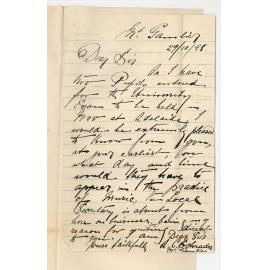 Mt Gambier
29/10/98
Dear Sir
As I have
two Pupils entered
for the University
Exams to be held in
Nov at Adelaide, I
would be extremely pleased
to know from you,
at your earliest, on
what day and time
would they have to
appear in the Practice
of Music, our Local
Secretary is absent from
here on business, being my
reason for writing direct
to you. I am Dear Sir
Yours faithfully
Mt Gambier